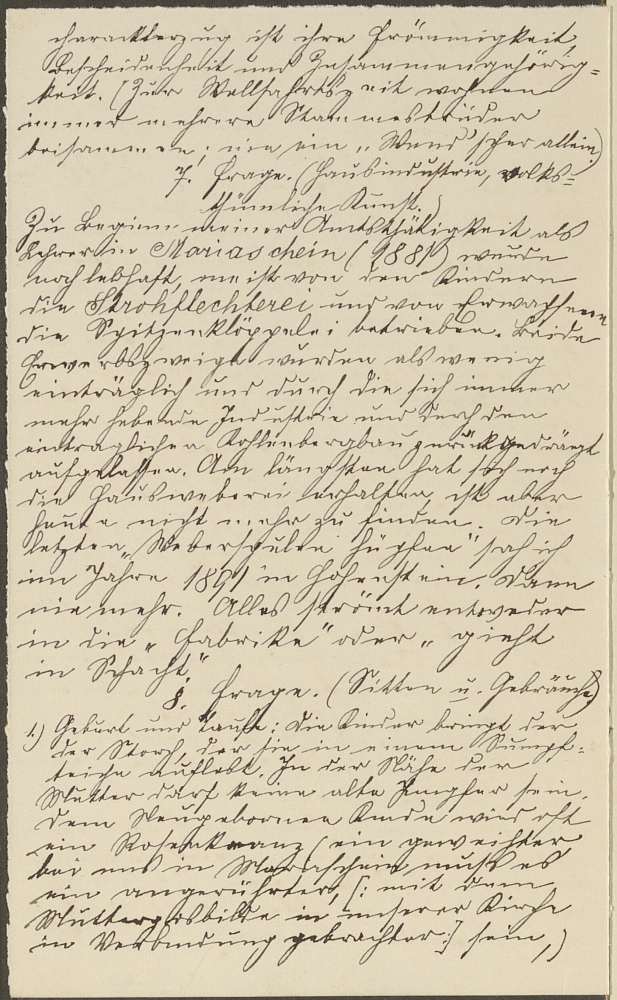 charackterzug ist ihre Frömmigkeit,
Bescheidenheit und Zusammengehörig=
keit. (Zur Wallfahrtszeit wohnen
immer mehrere Stammesbrüder
beisammen; nie ein „Wend'scher allein.)
7. Frage. (Hausindustrie, volks=
thümliche Kunst.)
Zu Beginn meiner Amtsthätigkeit als
Lehrer in Mariaschein (1881) wurde
noch lebhaft, meist von den Kindern
die Strohflechterei und von Erwachsenen
die Spitzenklöppelei betrieben. Beide
Erwerbszweige wurden als wenig
einträglich und durch die sich immer
mehr hebende Industrie und durch den
einträglichen Kohlenbergbau zurückgedrängt
aufgelassen. Am längsten hat sich noch
die Hausweberei erhalten, ist aber
heute nicht mehr zu finden. Die
letzten „Weberspulen hüpfen" sah ich
im Jahre 1891 in Hohenstein. Dann
nie mehr. Alles strömt entweder
in die „Fabrike" oder „gieht
in Schacht".
8. Frage. (Sitten u. Gebräuche)
1.) Geburt und Taufe: Die Kinder bringt der
der Storch, der sie in einem Sumpf=
teiche aufklabt. In der Nähe der
Mutter darf keine alte Jungfer sein.
Dem Neugebornen Kinde wird oft
ein Rosenkranz (ein geweihter
bei uns in Mariaschein, muß es
ein angerührter, [: mit dem
Muttergottesbilde in unserer Kirche
in Verbindung gebrachter :] sein,)